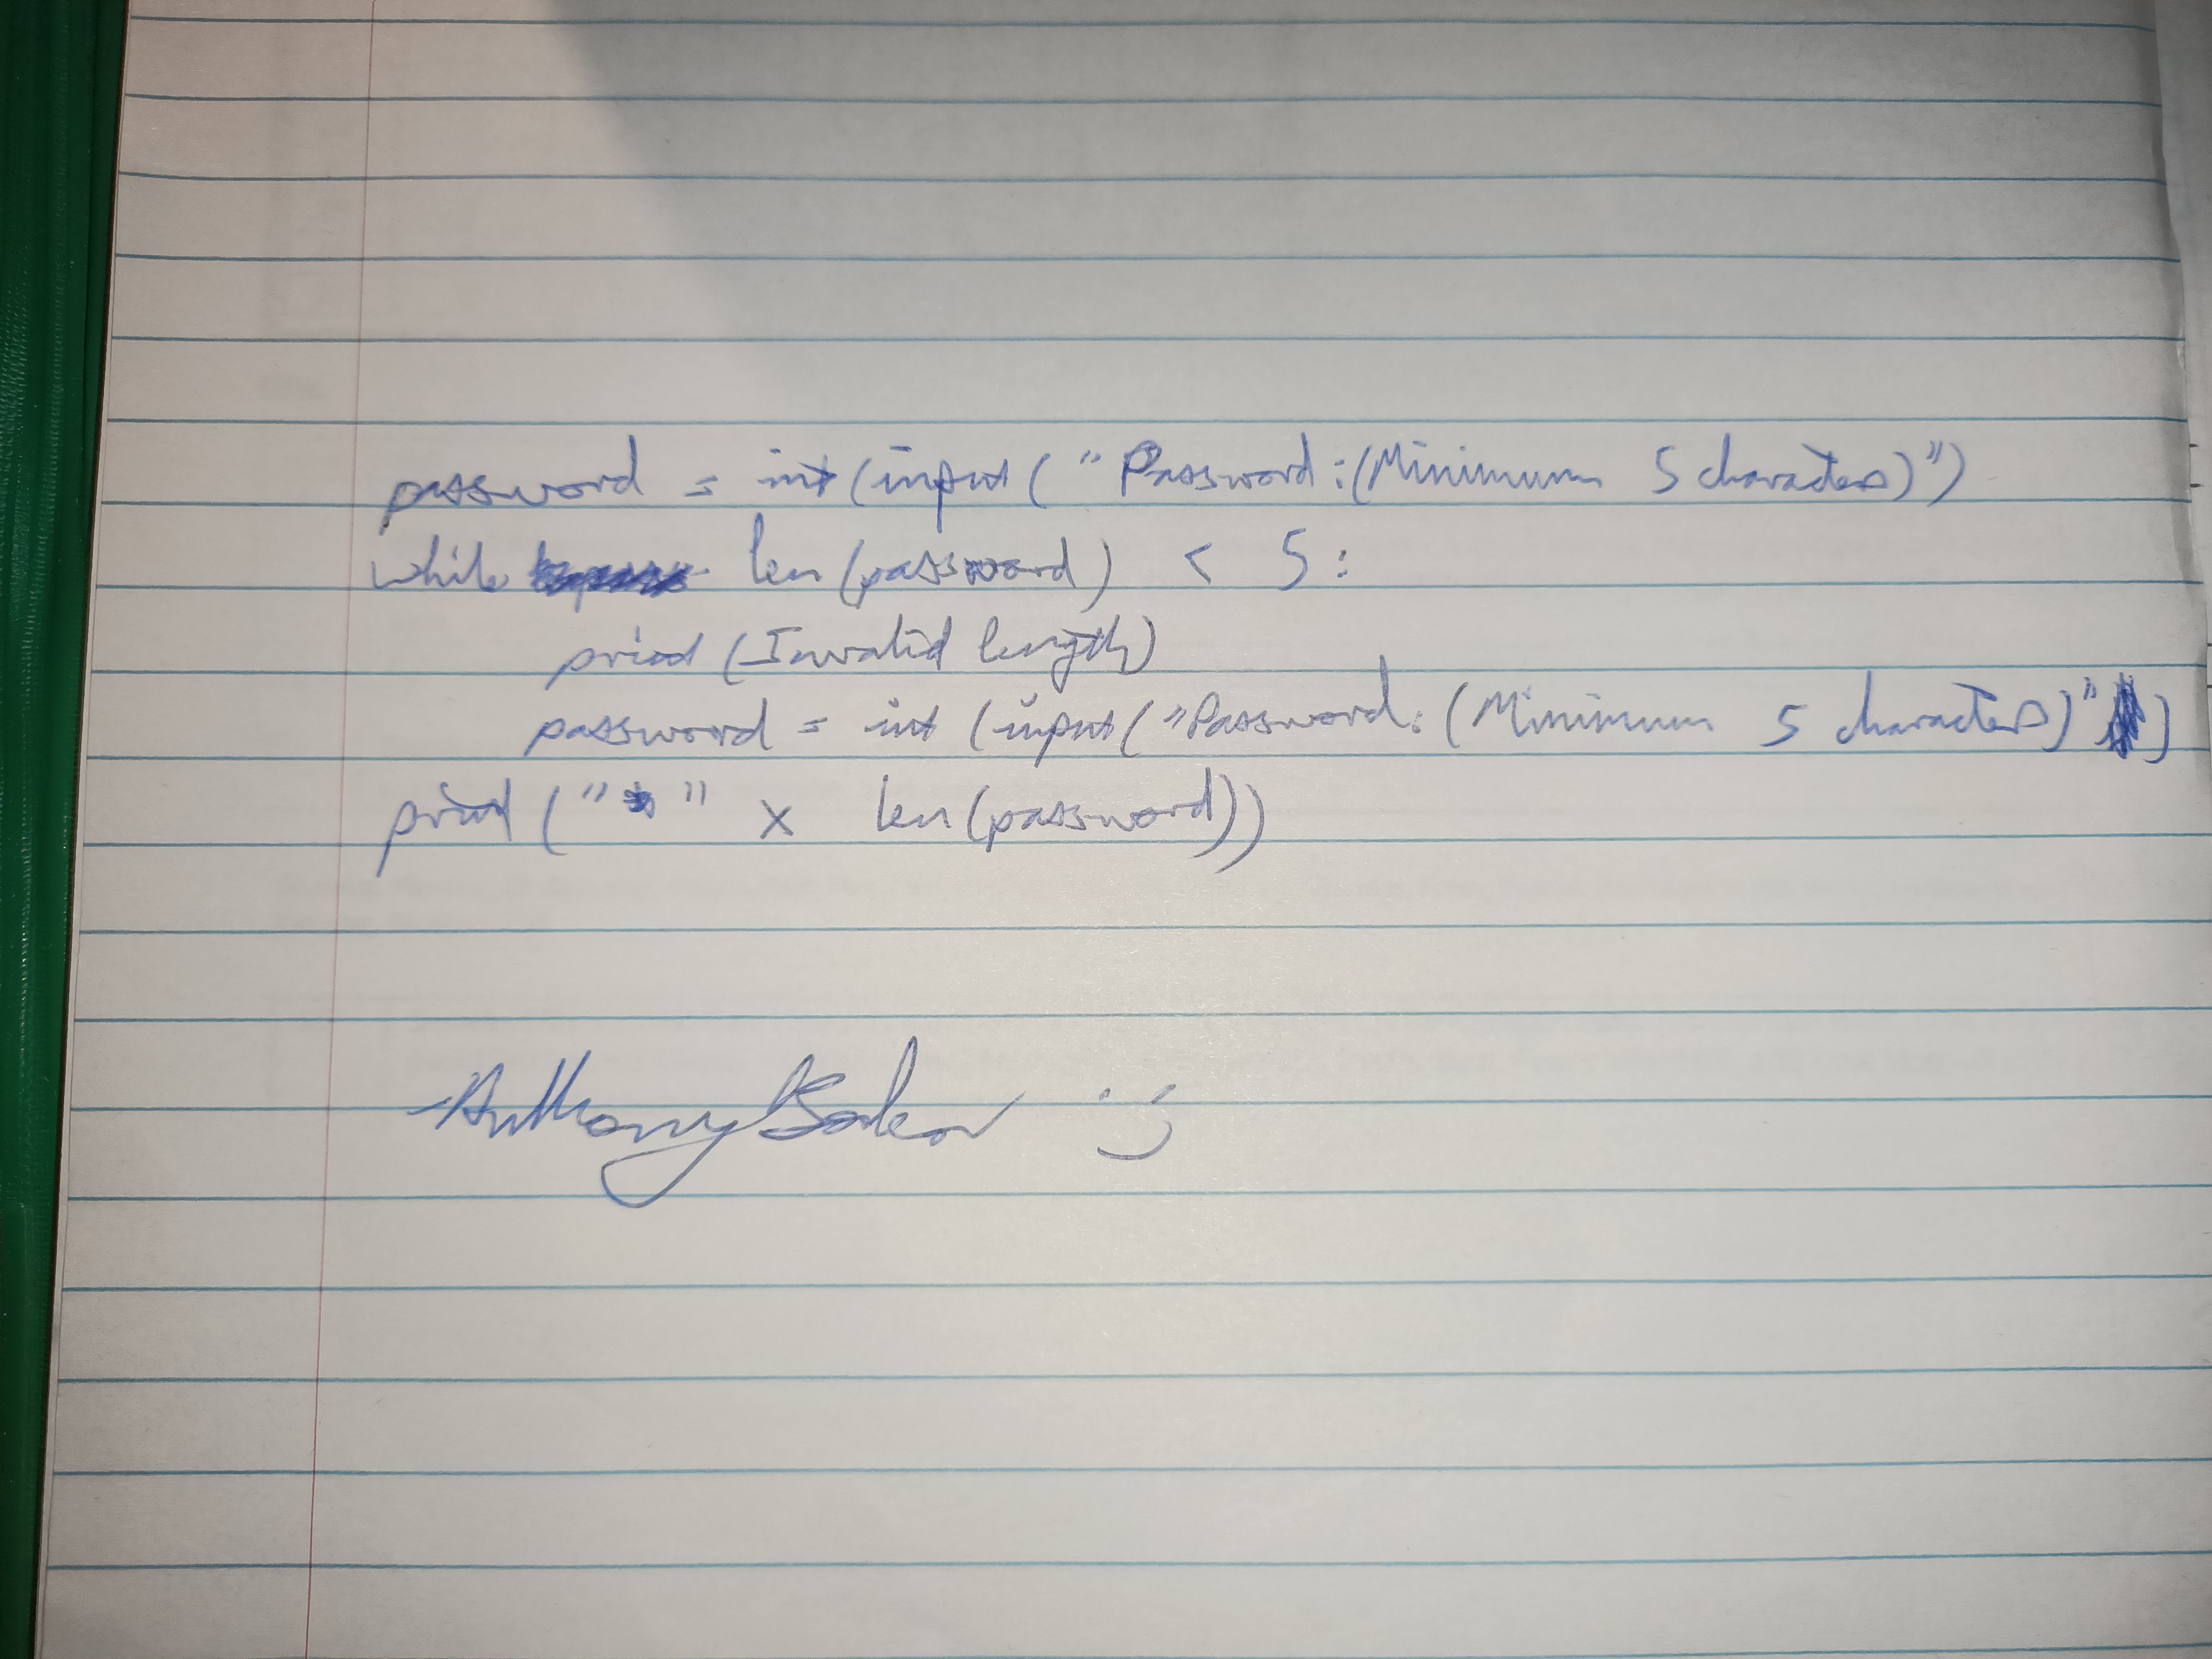 password = int(input("Password:(Minimum 5 characters)")
while len(password) < 5:
print(Invalid length)
password = int(input("Password:(Minimum 5 characters)")
print("*" x len(password))
-Anthony :)